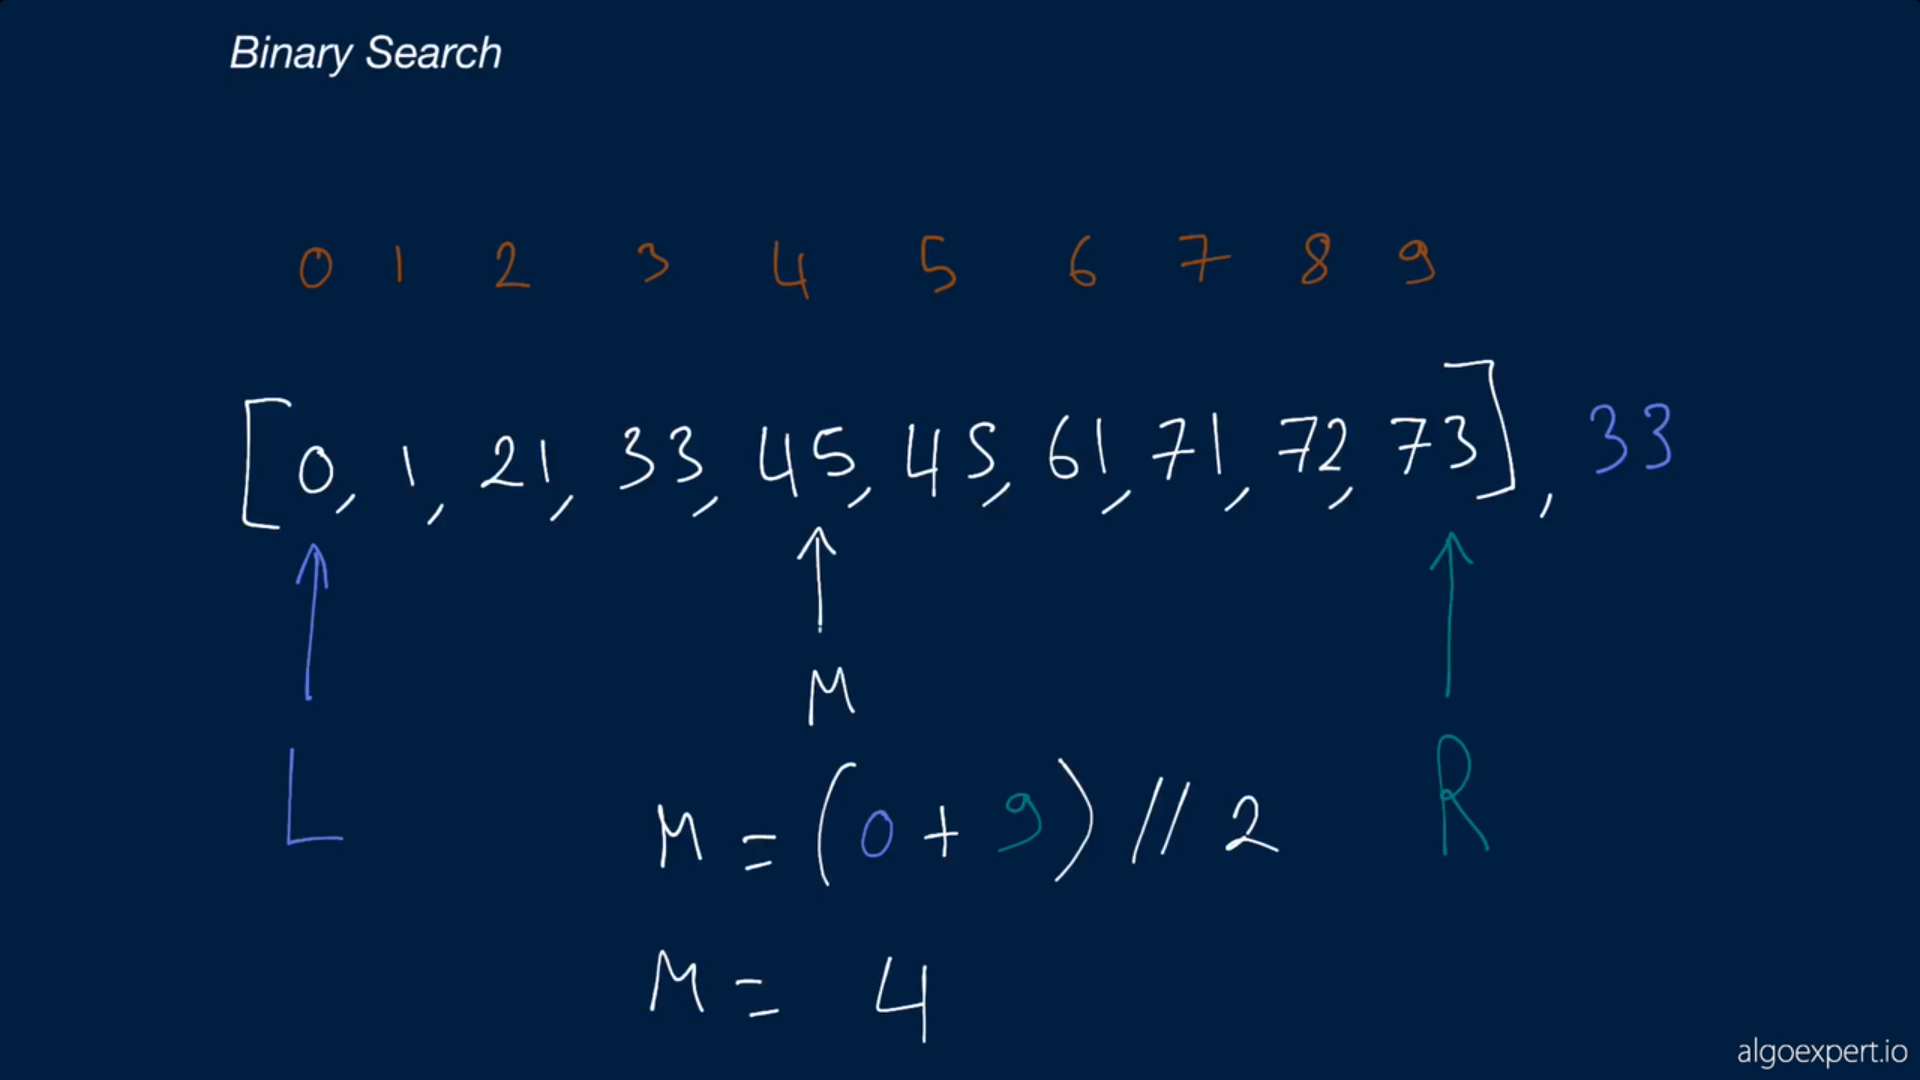 Binary Search
0 1 2 3 4 5 6 7 8 9
[0, 1, 21, 33, 45, 45, 61, 71, 72, 73], 33
M
L
R
M = (0 + 9) // 2
M = 4
algoexpert.io